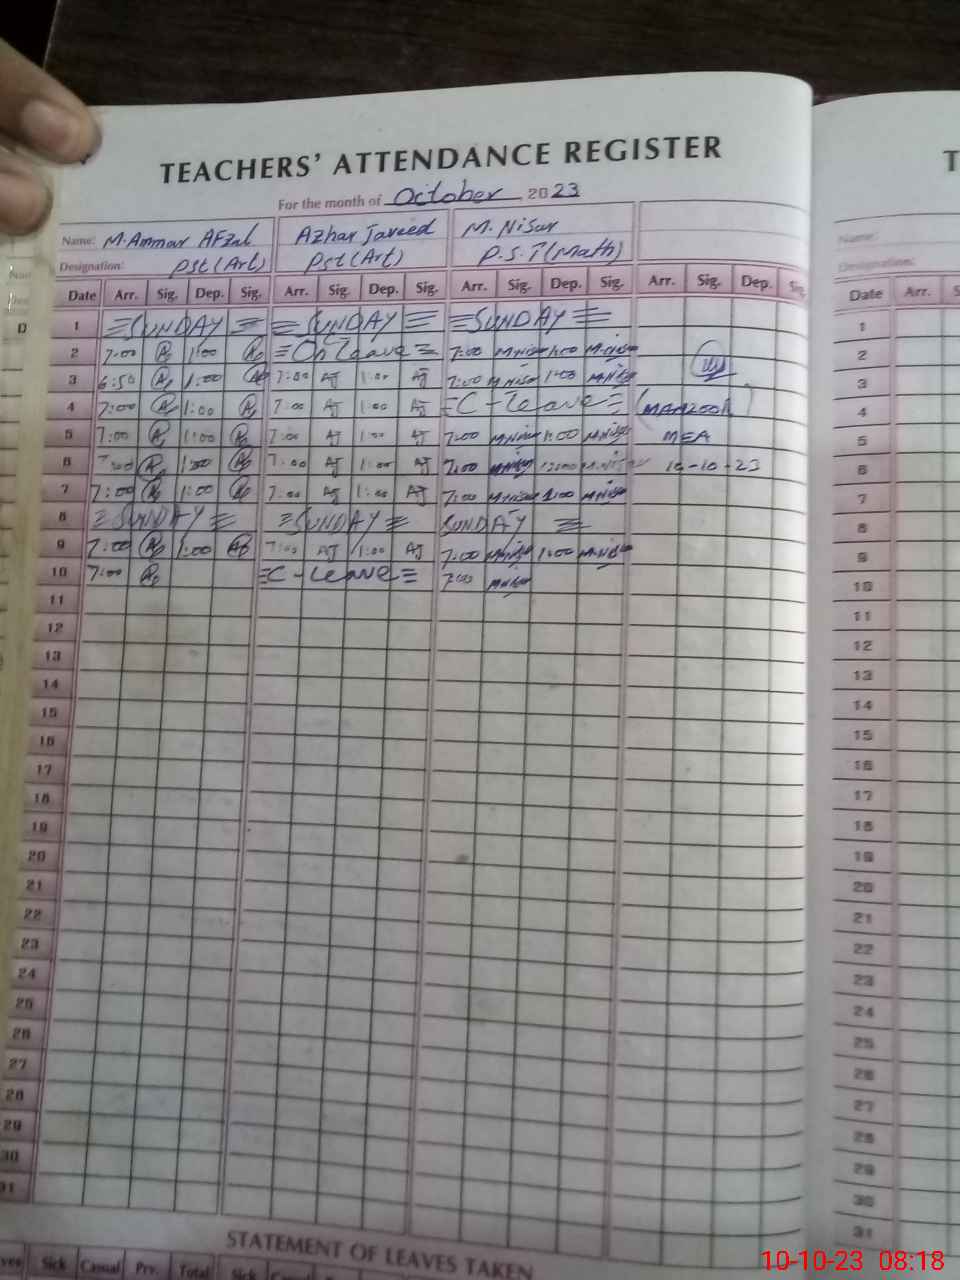 TEACHERS' ATTENDANCE REGISTER
For the month of October, 2023
Name: M.Ammar AFzal Azhar Javeed M. Nisar
Designation: Pst (Art) Pst (Art) P.S.T (Math)
Date Arr. Sig. Dep. Sig. Arr. Sig. Dep. Sig. Arr. Sig. Dep. Sig. Arr. Sig. Dep. Sig.
1 SUNDAY SUNDAY SUNDAY
2 7:00 1:00 On leave 7:00 M.Nisar 1:00 M.Nisar
3 6:50 1:00 7:00 AJ 1:00 AJ 7:00 M.Nisar 1:00 M.Nisar
4 7:00 1:00 7:00 AJ 1:00 AJ C-leave
5 7:00 1:00 7:00 AJ 1:00 AJ 7:00 M.Nisar 1:00 M.Nisar MEA
6 7:00 1:00 7:00 AJ 1:00 AJ 7:00 M.Nisar M.Nisar 10-10-23
7 7:00 1:00 7:00 AJ 1:00 AJ 7:00 M.Nisar 1:00 M.Nisar
8 SUNDAY SUNDAY SUNDAY
9 7:00 1:00 7:00 AJ 1:00 AJ 7:00 M.Nisar 1:00 M.Nisar
10 7:00 C-leave 7:00 M.Nisar
11
12
13
14
15
16
17
18
19
20
21
22
23
24
25
26
27
28
29
30
31
STATEMENT OF LEAVES TAKEN
Sick Casual Prv. Total Sick Casual Prv. Total
T
Name:
Designation:
Date Arr. S
1
2
3
4
5
6
7
8
9
10
11
12
13
14
15
16
17
18
19
20
21
22
23
24
25
26
27
28
29
30
31
10-10-23 08:18